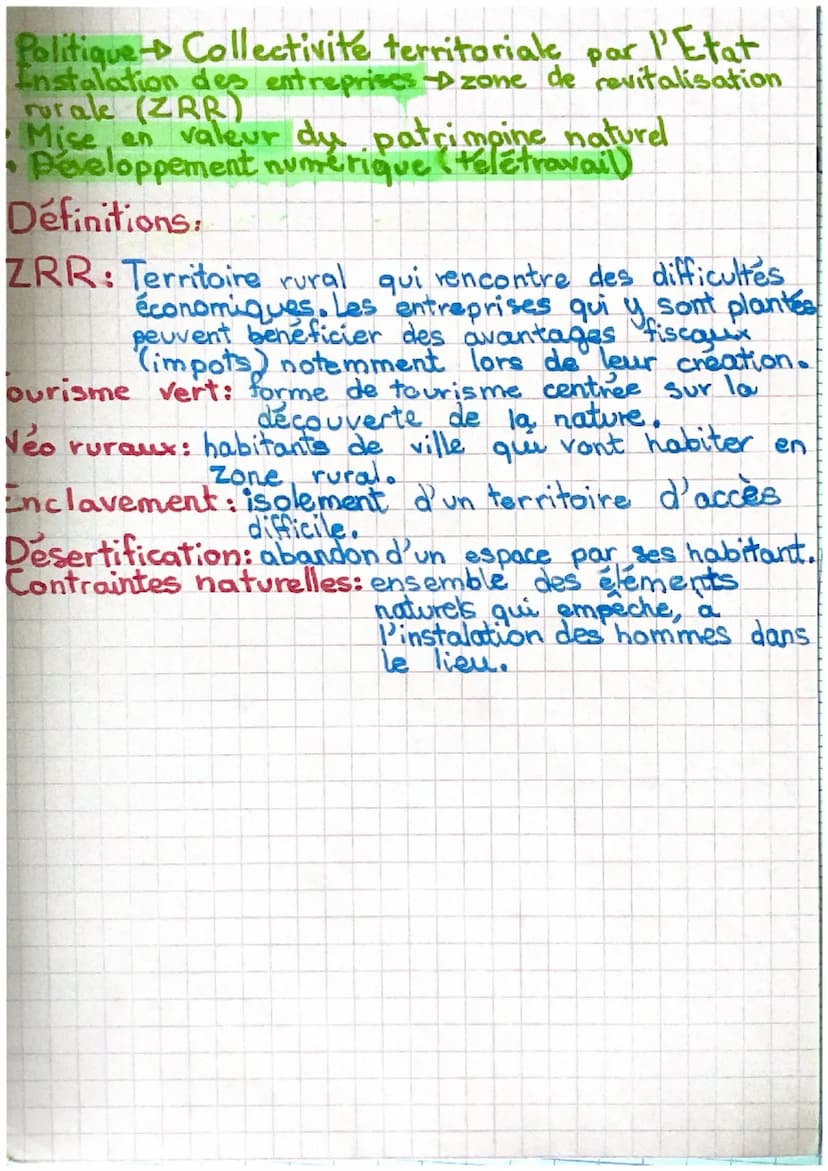 Politique → Collectivité territoriale par l'État
Instalation des entreprises → zone de revitalisation
rurale (ZRR)
• Mise en valeur du patrimoine naturel
• Développement numérique (télétravail)
Définitions:
ZRR: Territoire rural qui rencontre des difficultés
économiques. Les entreprises qui y sont plantés
peuvent bénéficier des avantages fiscaux
(impots) notemment lors de leur création.
ourisme vert: forme de tourisme centrée sur la
découverte de la nature.
Néo ruraux: habitants de ville qui vont habiter en
zone rural.
Enclavement: isolement d'un territoire d'accès
difficile.
Désertification: abandon d'un espace par ses habitant.
Contraintes naturelles: ensemble des éléments
naturels qui empêche, a
l'instalation des hommes dans
le lieu.